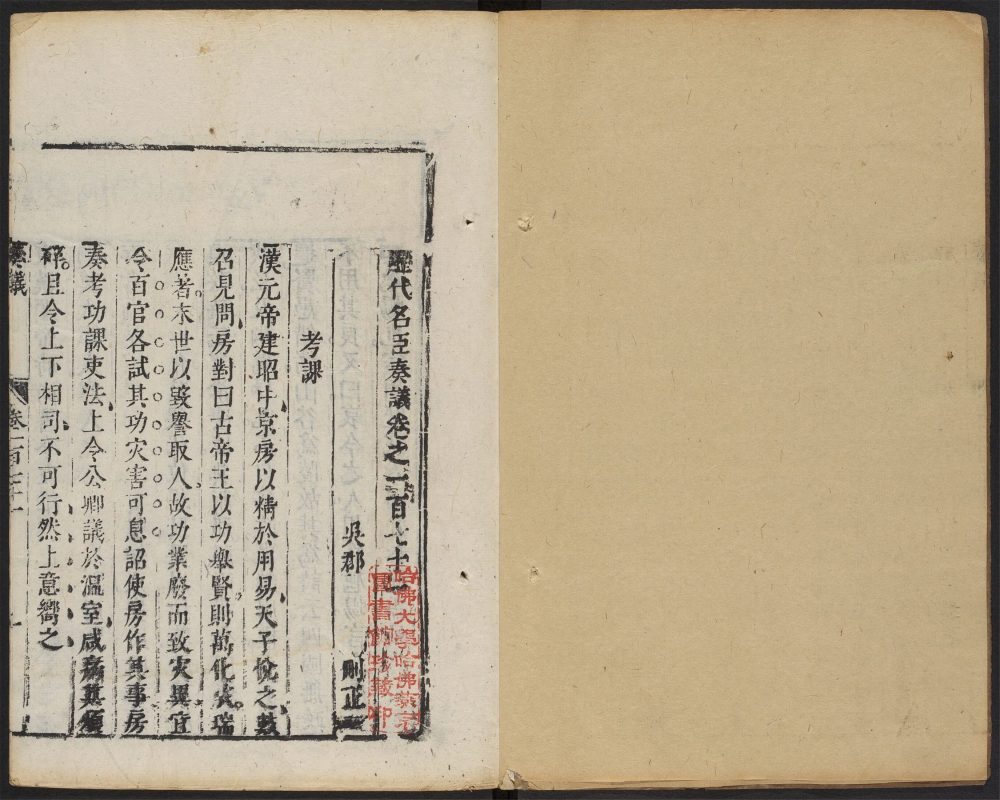 歷代名臣奏議卷之一百七十
吳郡 刪正
考課
漢元帝建昭中京房以精於用易天子悅之數
召見問房對曰古帝王以功舉賢則萬化成瑞
應著末世以毀譽取人故功業廢而致灾異宜
令百官各試其功灾害可息詔使房作其事房
奏考功課吏法上令公卿議於溫室咸病其煩
碎且令上下相司不可行然上意嚮之
奏議 卷一百七十 一
哈佛大學哈佛燕京
圖書館珍藏印